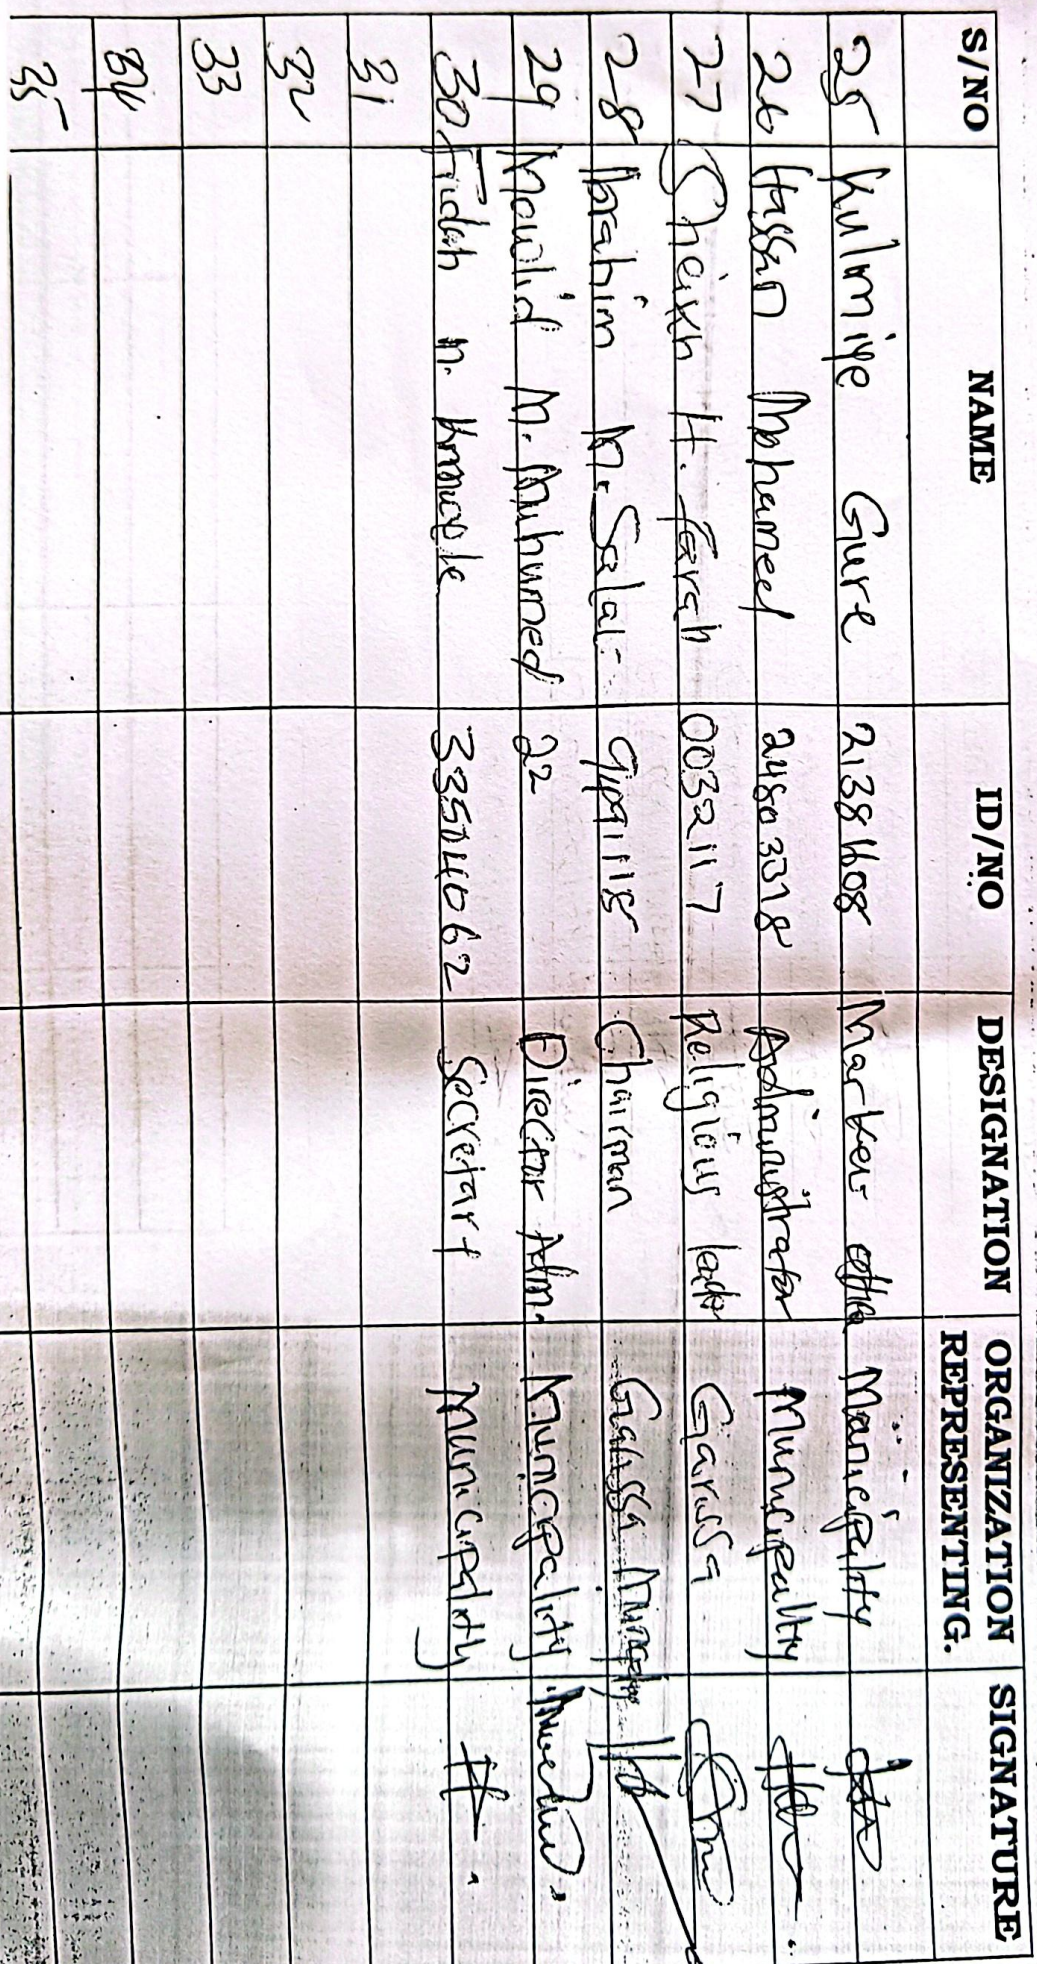 S/NO NAME ID/NO DESIGNATION ORGANIZATION REPRESENTING. SIGNATURE
25 Kulmiye Gure 21381608 Market Municipality
26 Hassan Mohamed 24803318 Administrator Municipality
27 Sheikh H. Farah 0032117 Religious leader Garissa
28 Ibrahim M. Salat Chairman Garissa
29 Mowlid M. Muhumed 22 Director Adm. Municipality
30 33504062 Secretary Municipality
31
32
33
34
35